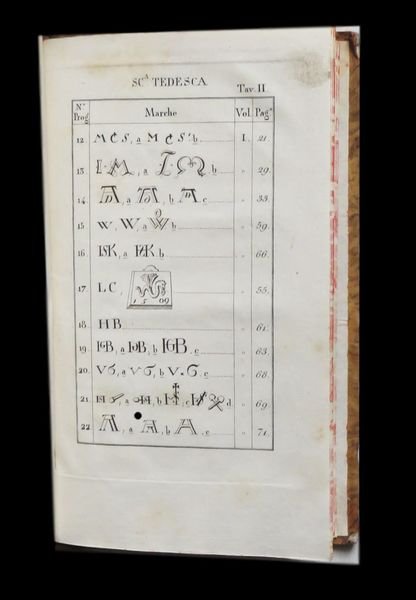 SC.ᴬ TEDESCA
Tav. II.
N.º Prog. Marche Vol. Pag.ª
12 M C S, a M C S b I. 21.
13 , a , b " 29.
14 , a , b , c " 35.
15 W, W, a W b " 59.
16 ISK, a b " 66.
17 L C, 1509 " 55.
18 HB " 61.
19 HGB, a , b HGB, c " 63.
20 VG, a VG, b V.G. c " 68.
21 , a , b , c d " 69.
22 A, a A, b A, c " 71.